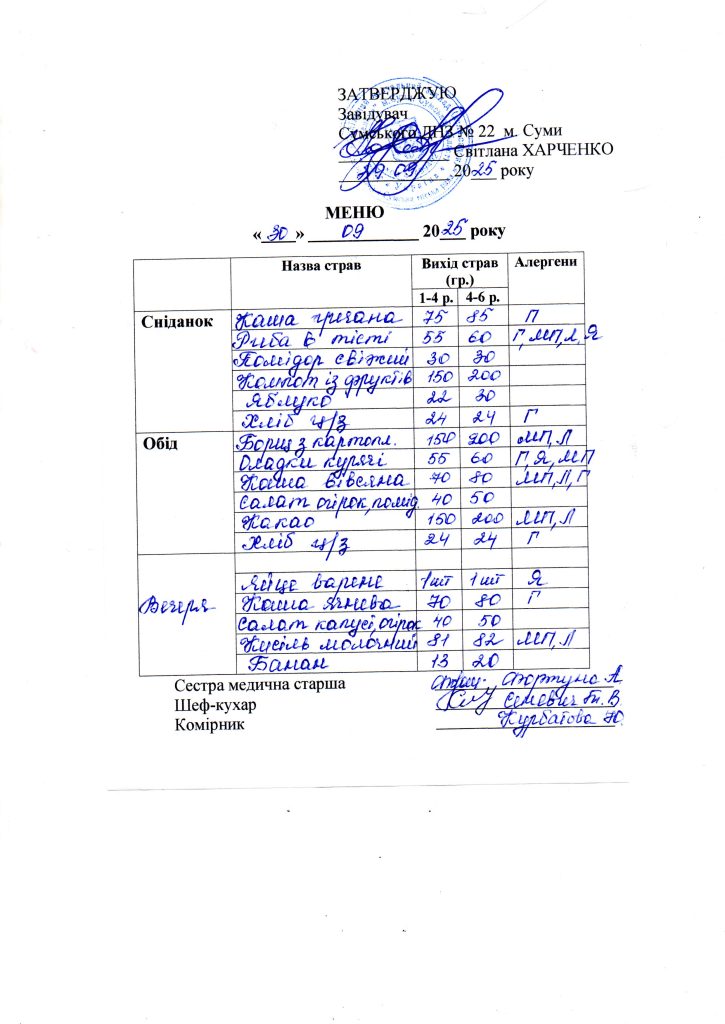 ЗАТВЕРДЖУЮ
Завідувач
Сумського ДНЗ № 22 м. Суми
Світлана ХАРЧЕНКО
29 09 2025 року
МЕНЮ
«30» 09 2025 року
Назва страв Вихід страв (гр.) Алергени
1-4 р. 4-6 р.
Сніданок Каша гречана 75 85 П
Риба в тісті 55 60 Г, МП, Л, Я
Помідор свіжий 30 30
Компот із фруктів 150 200
Яблуко 22 30
Хліб ц/з 24 24 Г
Обід Борщ з картопл. 150 200 МП, Л
Оладки курячі 55 60 Г, Я, МП
Каша вівсяна 70 80 МП, Л, Г
Салат огірок, помід. 40 50
Какао 150 200 МП, Л
Хліб ц/з 24 24 Г
Вечеря
Яйце варене 1 шт 1 шт Я
Каша ячнева 70 80 Г
Салат капуст, огірок 40 50
Кисіль молочний 81 82 МП, Л
Банан 13 20
Сестра медична старша Фортуна А.
Шеф-кухар Семевич Т. В.
Комірник Курбатова Ю.